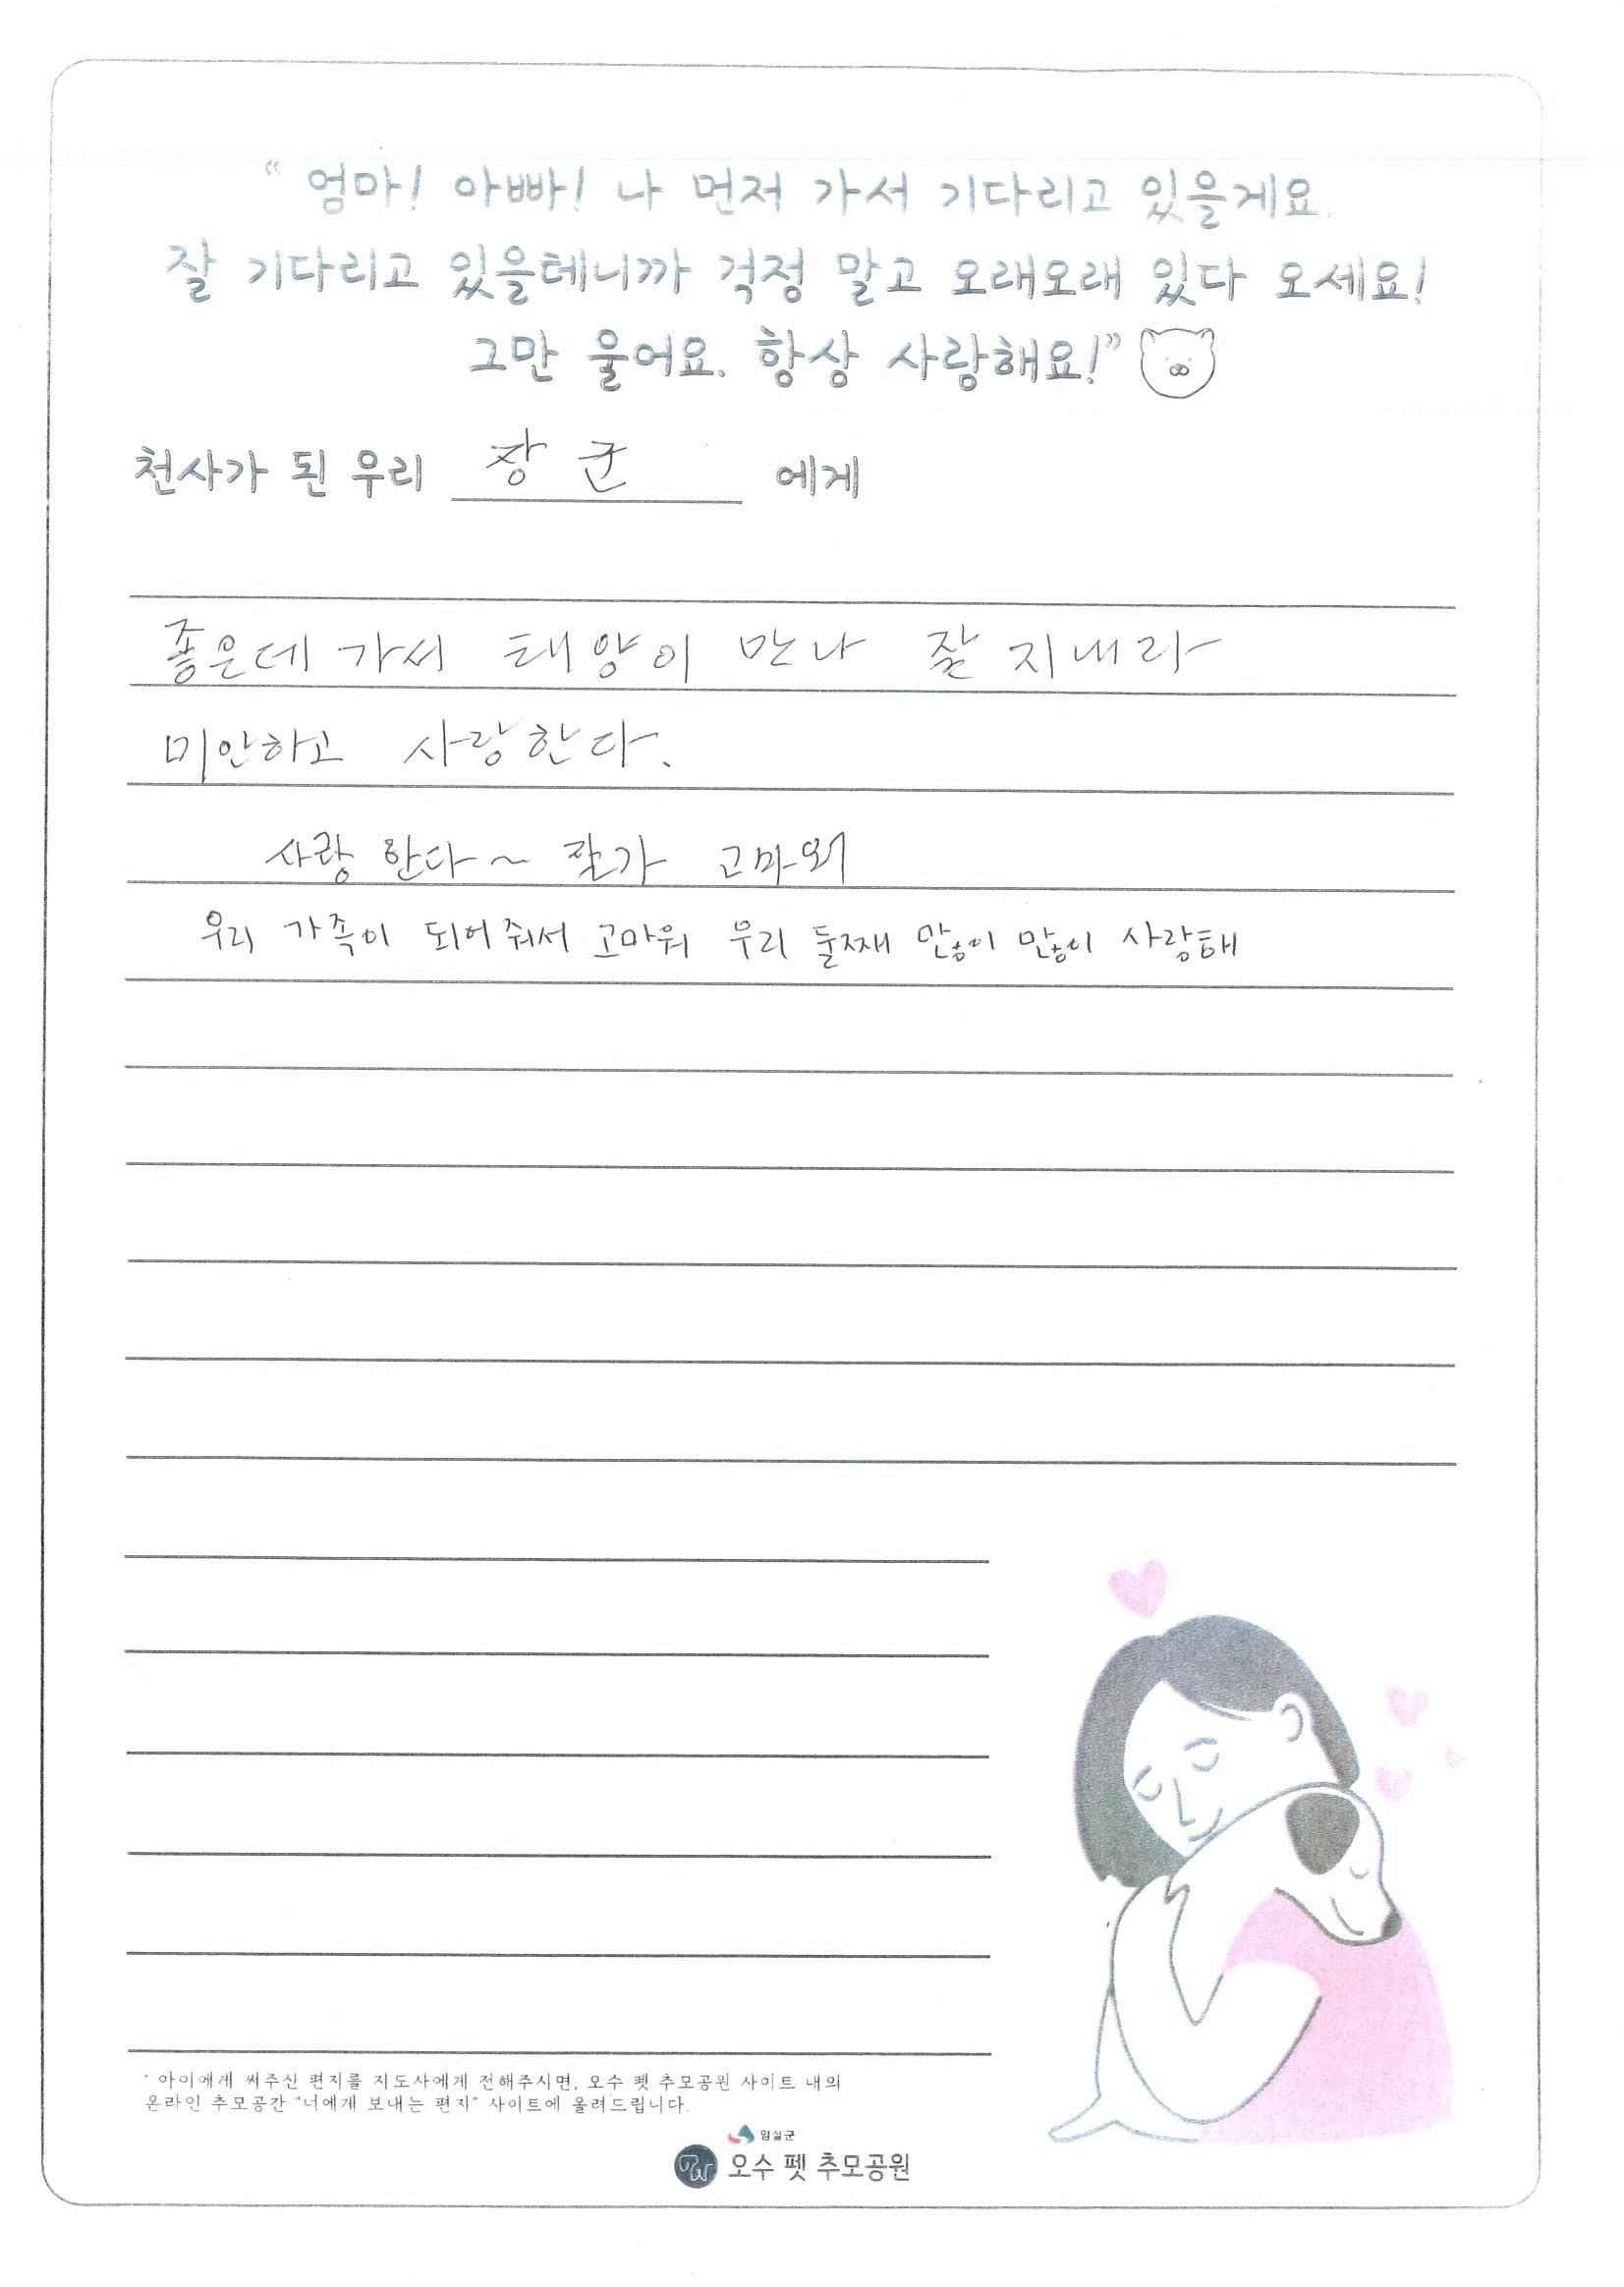 “ 엄마! 아빠! 나 먼저 가서 기다리고 있을게요.
잘 기다리고 있을테니까 걱정 말고 오래오래 있다 오세요!
그만 울어요. 항상 사랑해요!”
천사가 된 우리 장군 에게
좋은데 가서 태양이 만나 잘 지내라
미안하고 사랑한다.
사랑한다~ 잘가 고마워
우리 가족이 되어줘서 고마워 우리 둘째 많이 많이 사랑해
* 아이에게 써주신 편지를 지도사에게 전해주시면, 오수 펫 추모공원 사이트 내의
온라인 추모공간 "너에게 보내는 편지" 사이트에 올려드립니다.
임실군
PW 오수 펫 추모공원